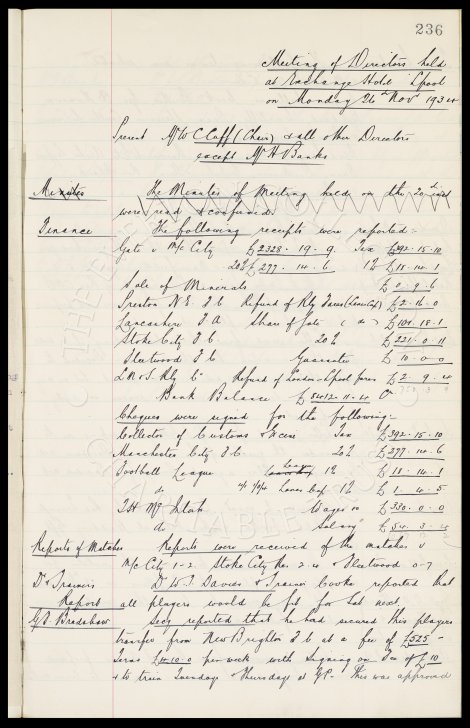 236
Meeting of Directors held
at Exchange Hotel L'pool
on Monday 26th Nov 1934
Present Mr W C Cuff (Chair) & all other Directors
except Mr H Banks
Minutes The Minutes of Meeting held on the 20th inst
were read & confirmed.
Finance The following receipts were reported:-
Gate v M/c City £2328. 19. 9 Tax £392-15-10
20% £277. 14. 6 1% £11-14-1
Sale of Minerals £0-9-6
Preston N.E. F C Refund of Rly Fares (Lancs Cup) £2-16-0
Lancashire F A Share of Gate ( do ) £104-18-1
Stoke City F C 20% £221-0-11
Fleetwood F C Guarantee £10-0-0
L M & S Rly Co Refund of London-L'pool fares £2-9-4
Bank Balance £5412-11-4
Cheques were signed for the following:-
Collector of Customs & Excise Tax £392-15-10
Manchester City F. C. 20% £277-14-6
Football League League 1% £11-14-1
do Lancs Cup 1% £1-4-5
T.H. McIntosh Wages £330-0-0
do Salary £54.3.4
Reports of Matches Reports were received of the matches v
M/c City 1-2. Stoke City Res. 2-4 & Fleetwood 0-7
Dr & Trainers Dr W.J Davies & Trainer Cooke reported that
Report all players would be fit for Sat next.
G.F. Bradshaw Secy reported that he had secured this players
transfer from New Brighton F C at a fee of £525-
Terms £4-10-0 per week with Signing on Fee of £10
& to train Tuesday & Thursday at G.P. This was approved